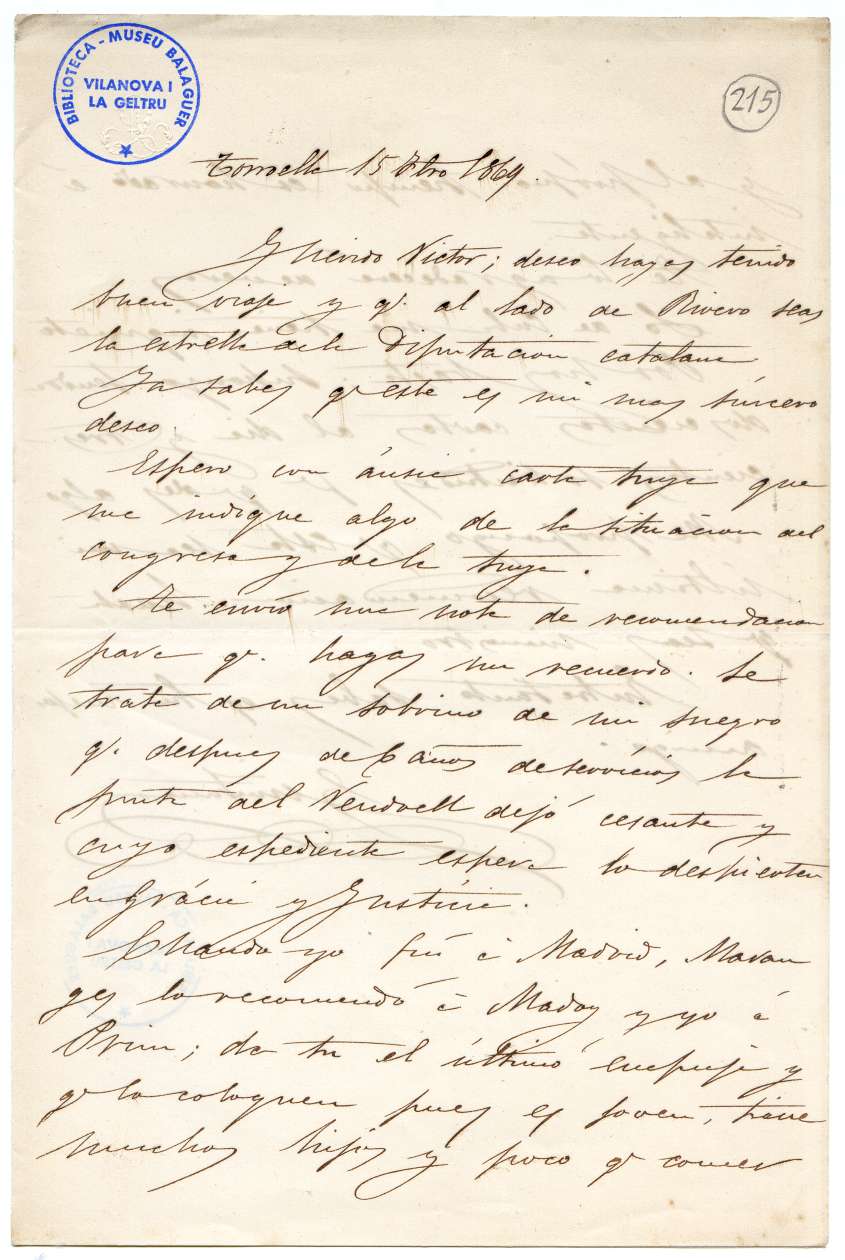 BIBLIOTECA - MUSEU BALAGUER
VILANOVA I
LA GELTRU
215
Torroella 15 Fbro 1869.
Querido Victor; deseo hayas tenido
buen viaje y q.e al lado de Rivero seas
la estrella de la Diputación catalana
Ya sabes q.e este es mi mas sincero
deseo.
Espero con ánsia carta tuya que
me indique algo de la situacion del
Congreso y de la tuya.
Te envió una nota de recomendacion
para q.e hagas un recuerdo. Se
trata de un sobrino de mi suegro
q.e despues de 6 años de servicios la
junta del Vendrell dejó cesante y
cuyo espediente espera lo despierten
en Grácia y Justicia.
Cuando yo fuí á Madrid, Maran
ges lo recomendó á Madoz y yo á
Prim; da tu el último empuje y
q.e lo coloquen pues es joven, tiene
muchos hijos y poco q.e comer